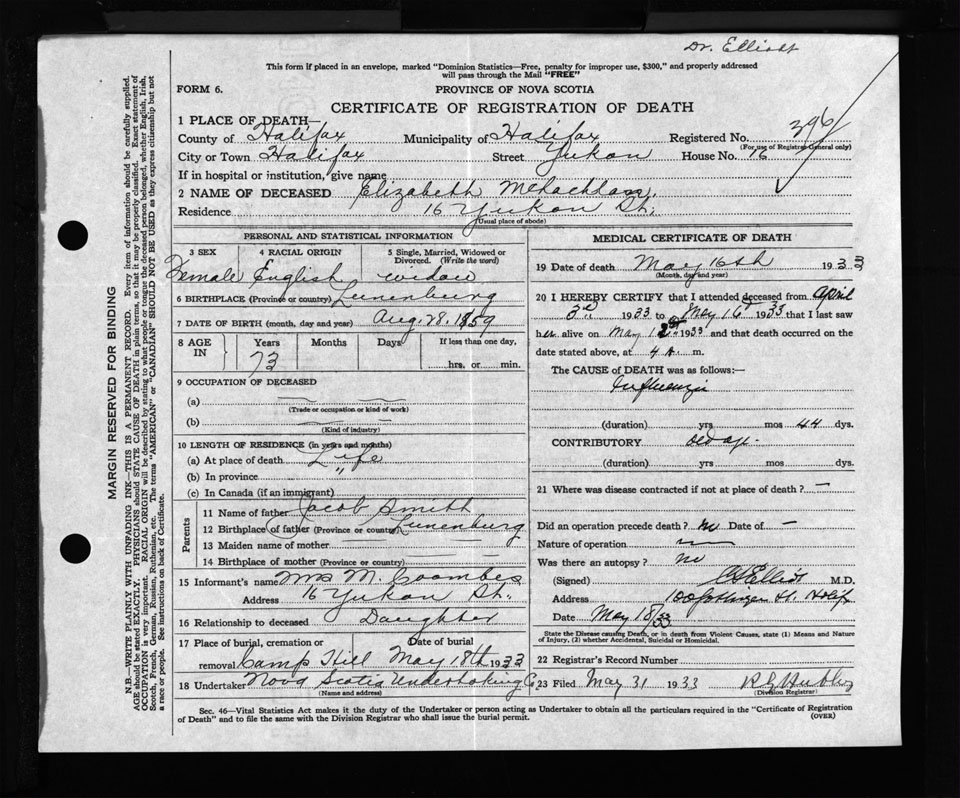 Dr. Elliott
This form if placed in an envelope, marked "Dominion Statistics—Free, penalty for improper use, $300," and properly addressed
will pass through the Mail "FREE"
FORM 6.
PROVINCE OF NOVA SCOTIA
CERTIFICATE OF REGISTRATION OF DEATH
1 PLACE OF DEATH—
County of Halifax Municipality of Halifax Registered No. 396
(For use of Registrar General only)
City or Town Halifax Street Yukon House No. 16
If in hospital or institution, give name
2 NAME OF DECEASED Elizabeth McLachlan,
Residence 16 Yukon St.
(Usual place of abode)
PERSONAL AND STATISTICAL INFORMATION
3 SEX 4 RACIAL ORIGIN 5 Single, Married, Widowed or
Divorced. (Write the word)
Female English widow
6 BIRTHPLACE (Province or country) Lunenburg
7 DATE OF BIRTH (month, day and year) Aug. 28. 1859
8 AGE IN Years Months Days If less than one day,
73 hrs. or min.
9 OCCUPATION OF DECEASED
(a) —
(Trade or occupation or kind of work)
(b) —
(Kind of industry)
10 LENGTH OF RESIDENCE (in years and months)
(a) At place of death Life
(b) In province "
(c) In Canada (if an immigrant)
Parents
11 Name of father Jacob Smith
12 Birthplace of father (Province or Country) Lunenburg
13 Maiden name of mother — —
14 Birthplace of mother (Province or country) — —
15 Informant's name Mrs M. Coombes
Address 16 Yukon St.
16 Relationship to deceased Daughter
17 Place of burial, cremation or Date of burial
removal Camp Hill May 18th 1933
18 Undertaker Nova Scotia Undertaking Co
(Name and address)
MEDICAL CERTIFICATE OF DEATH
19 Date of death May 16th 193 3
(Month, day and year)
20 I HEREBY CERTIFY that I attended deceased from April
3rd 1933 to May 16 1933 that I last saw
her alive on May 1933 and that death occurred on
date stated above, at 4 A. m.
The CAUSE of DEATH was as follows:—
Influenza
(duration) yrs mos 44 dys.
CONTRIBUTORY old age.
(duration) yrs mos dys.
21 Where was disease contracted if not at place of death? —
Did an operation precede death? no Date of —
Nature of operation —
Was there an autopsy? no
(Signed) Elliott M.D.
Address 100 Gottingen St. Halifx
Date May 18/33
State the Disease causing Death, or in death from Violent Causes, state (1) Means and Nature
of Injury, (2) whether Accidental, Suicidal or Homicidal.
22 Registrar's Record Number
23 Filed May 31 1933
(Division Registrar)
Sec. 46—Vital Statistics Act makes it the duty of the Undertaker or person acting as Undertaker to obtain all the particulars required in the "Certificate of Registration
of Death" and to file the same with the Division Registrar who shall issue the burial permit.
(OVER)
MARGIN RESERVED FOR BINDING
N.B.—WRITE PLAINLY WITH UNFADING INK—THIS IS A PERMANENT RECORD. Every item of information should be carefully supplied.
AGE should be stated EXACTLY. PHYSICIANS should STATE CAUSE OF DEATH in plain terms, so that it may be properly classified. Exact statement of
OCCUPATION is very important. RACIAL ORIGIN will be described by stating to what people or tongue the deceased person belonged, whether English, Irish,
Scotch, French, German, Russian, Ruthenian, etc. The terms "AMERICAN" or "CANADIAN" SHOULD NOT BE USED as they express citizenship but not
a race or people. See instructions on back of Certificate.